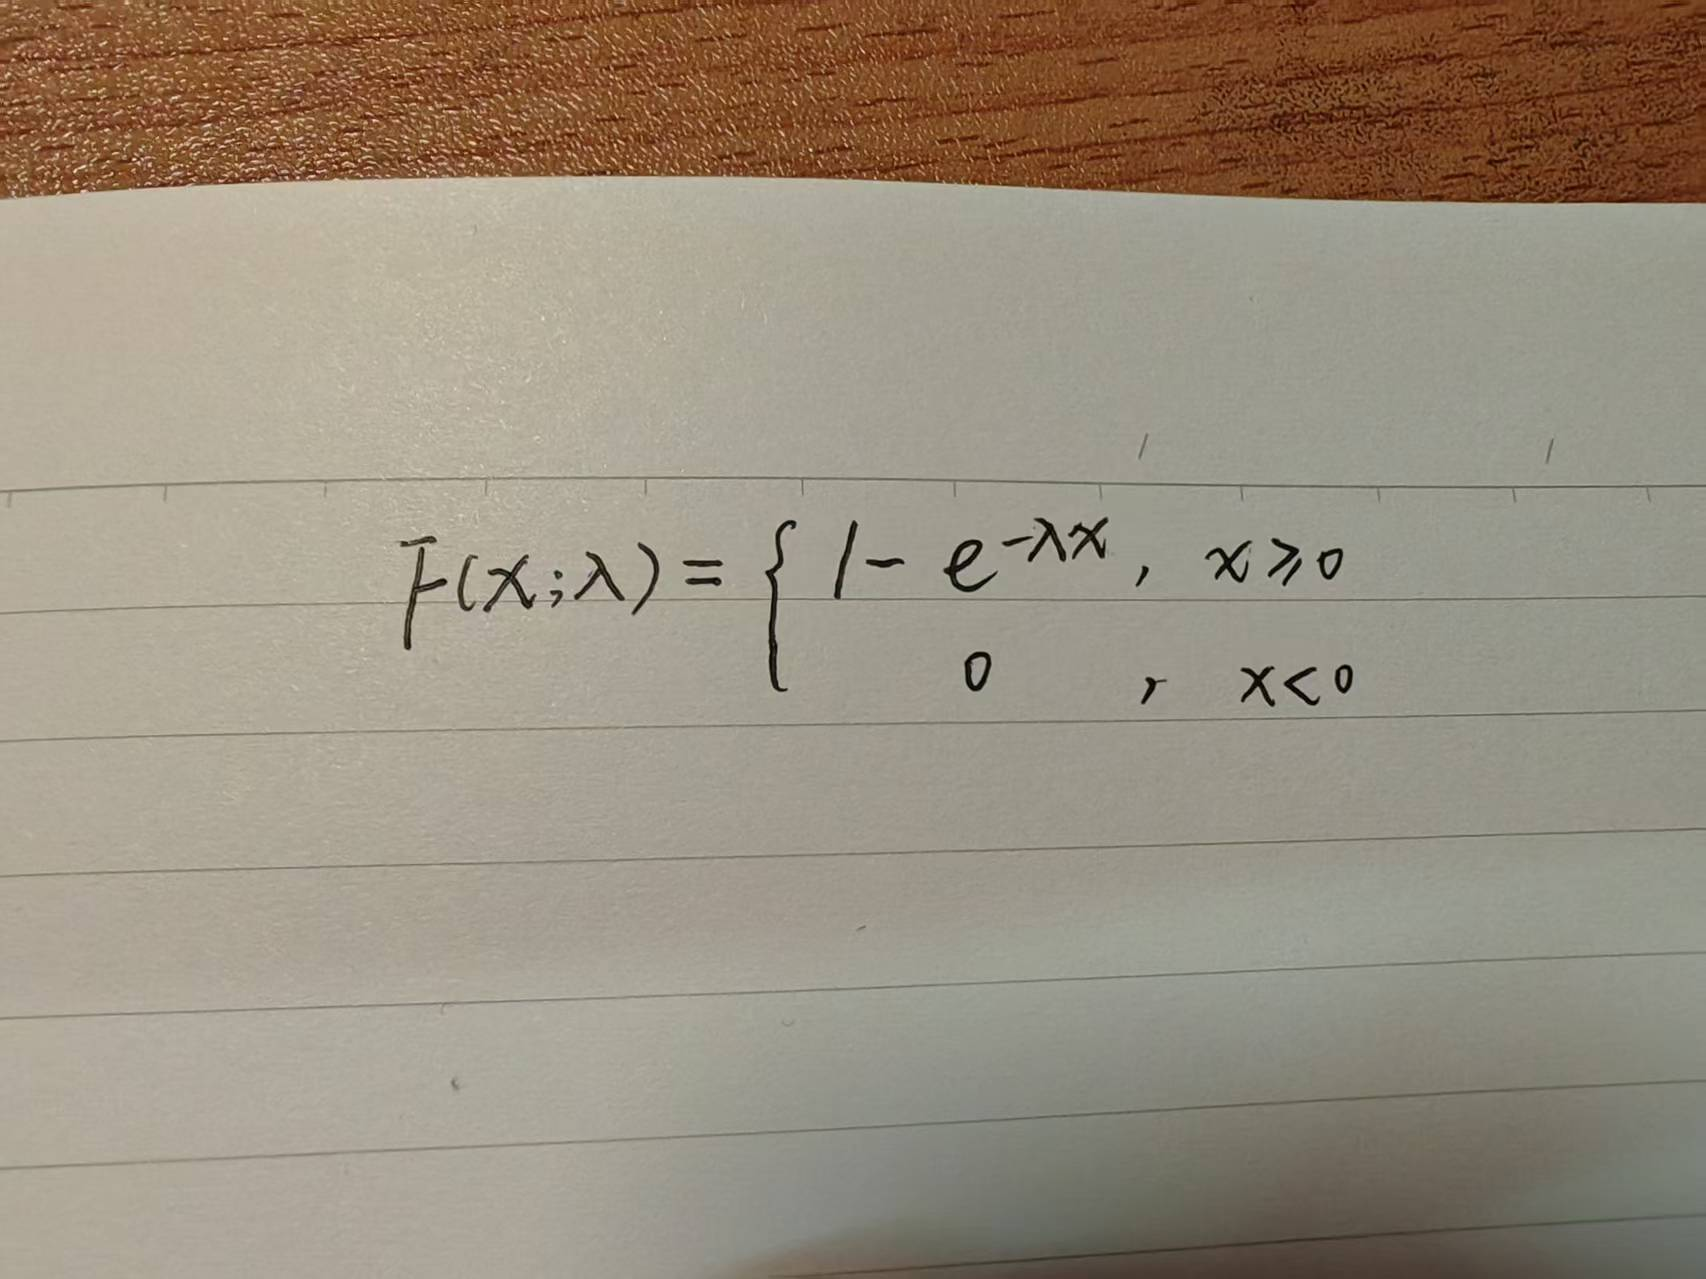 F(x;λ) = { 1 - e^{-λx} , x ≥ 0
0 , x < 0